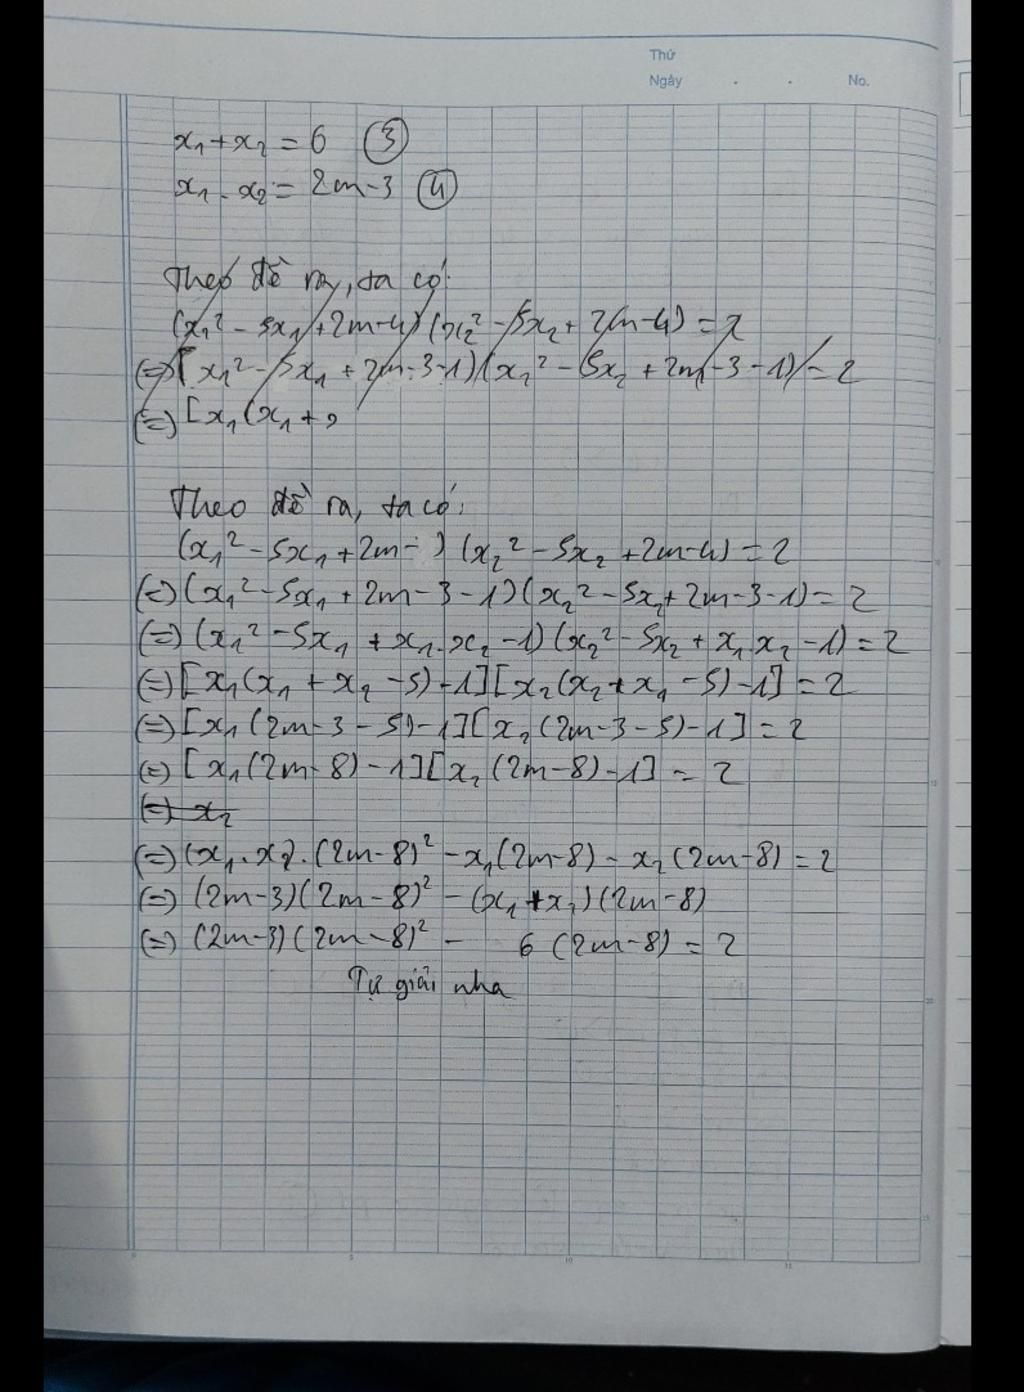 Thứ
Ngày . . No.
x₁ + x₂ = 6 (3)
x₁ . x₂ = 2m - 3 (4)
Theo đề ra, ta có:
(x₁² - 5x₁ + 2m - 4)(x₂² - 5x₂ + 2m - 4) = 2
(=) [x₁² - 5x₁ + 2m - 3 - 1)(x₂² - 5x₂ + 2m - 3 - 1) = 2
(=) [x₁(x₁ + x
Theo đề ra, ta có:
(x₁² - 5x₁ + 2m - )(x₂² - 5x₂ + 2m - 4) = 2
(=) (x₁² - 5x₁ + 2m - 3 - 1)(x₂² - 5x₂ + 2m - 3 - 1) = 2
(=) (x₁² - 5x₁ + x₁.x₂ - 1)(x₂² - 5x₂ + x₁x₂ - 1) = 2
(=) [x₁(x₁ + x₂ - 5) - 1][x₂(x₂ + x₁ - 5) - 1] = 2
(=) [x₁(2m - 3 - 5) - 1][x₂(2m - 3 - 5) - 1] = 2
(=) [x₁(2m - 8) - 1][x₂(2m - 8) - 1] = 2
(=) x₂
(=) (x₁.x₂).(2m - 8)² - x₁(2m - 8) - x₂(2m - 8) = 2
(=) (2m - 3)(2m - 8)² - (x₁ + x₂)(2m - 8)
(=) (2m - 3)(2m - 8)² - 6(2m - 8) = 2
Tự giải nha